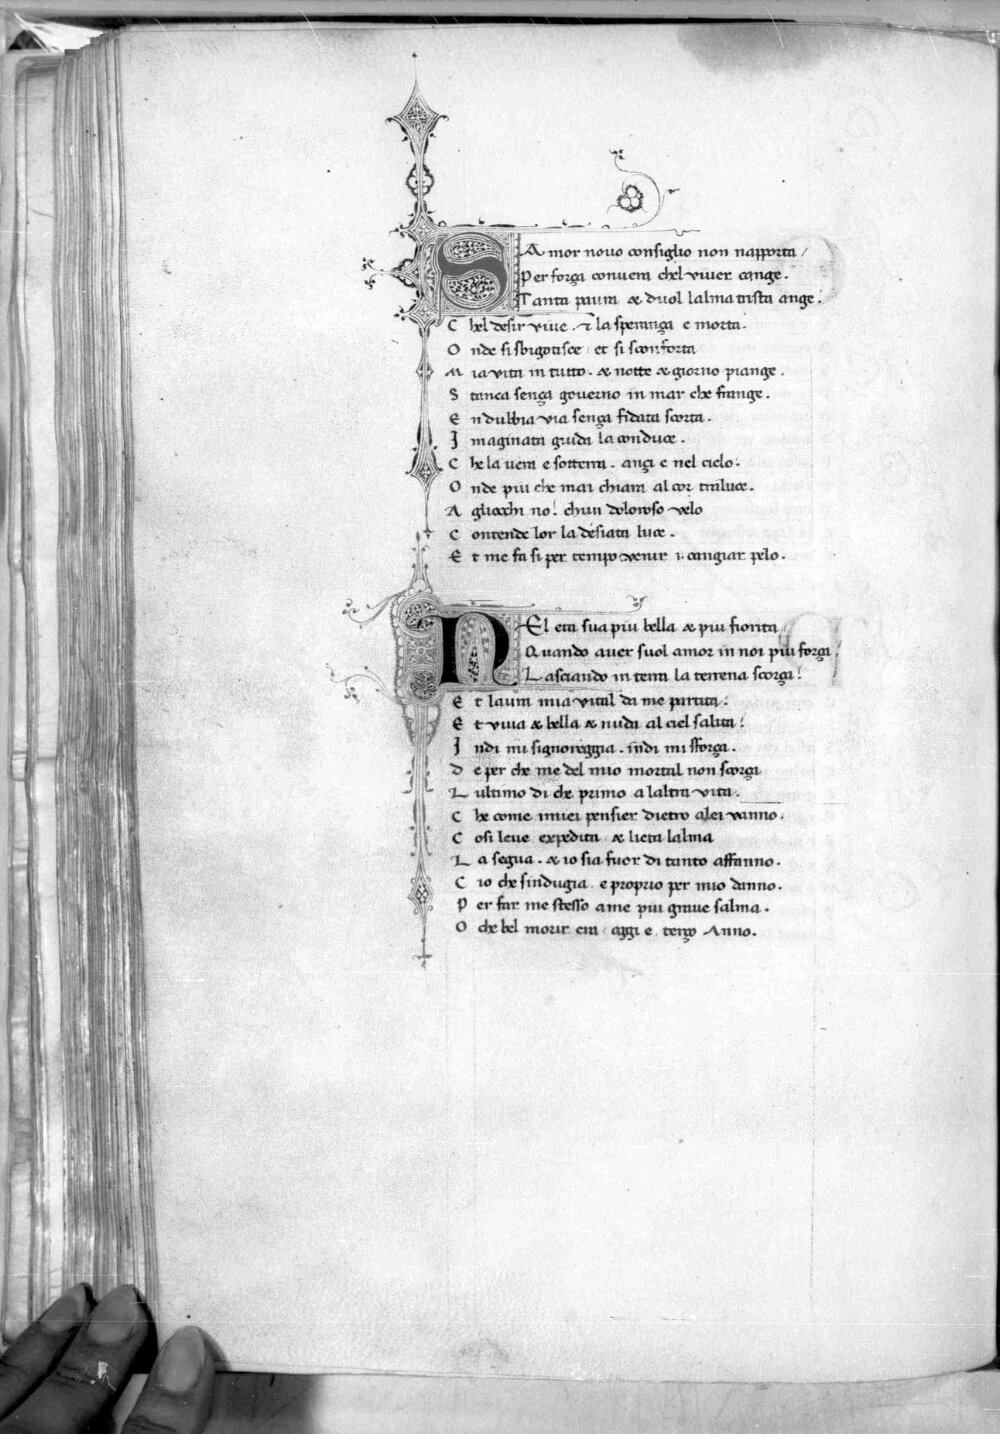 SAmor nouo consiglio non napporta /
Per força conuera chel viuer cange .
Tanta paura & duol lalma trista ange :
Chel desir viue . & la sperança e morta .
Onde si sbigotisce / et si sconforta
Mia vita in tutto . & notte & giorno piange .
Stanca sença gouerno in mar che frange .
En dubbia via sença fidata scorta .
Imaginata guida la conduce .
Che la uera e sotterra . ançi e nel cielo .
Onde piu che mai chiara al cor traluce .
Agliocchi no ! chun doloroso velo
Contende lor la desiata luce .
Et me fa si per tempo venir i . cangiar pelo .
NEl eta sua piu bella & piu fiorita /
Quando auer suol amor in noi piu força /
Lasciando in terra la terrena scorça !
Et laura mia vital da me partita :
Et viua & bella & nuda al ciel salita !
Indi mi signoreggia . indi mi sforça .
De per che me del mio mortal non scorça
Lultimo di che primo a laltra vita .
Che come imiei pensier dietro a lei vanno .
Cosi leue expedita / & lieta lalma
La segua . & io sia fuor di tanto affanno .
Cio che sindugia . e proprio per mio danno .
Per far me stesso a me piu graue salma .
O che bel morir era / oggi e . terço Anno .